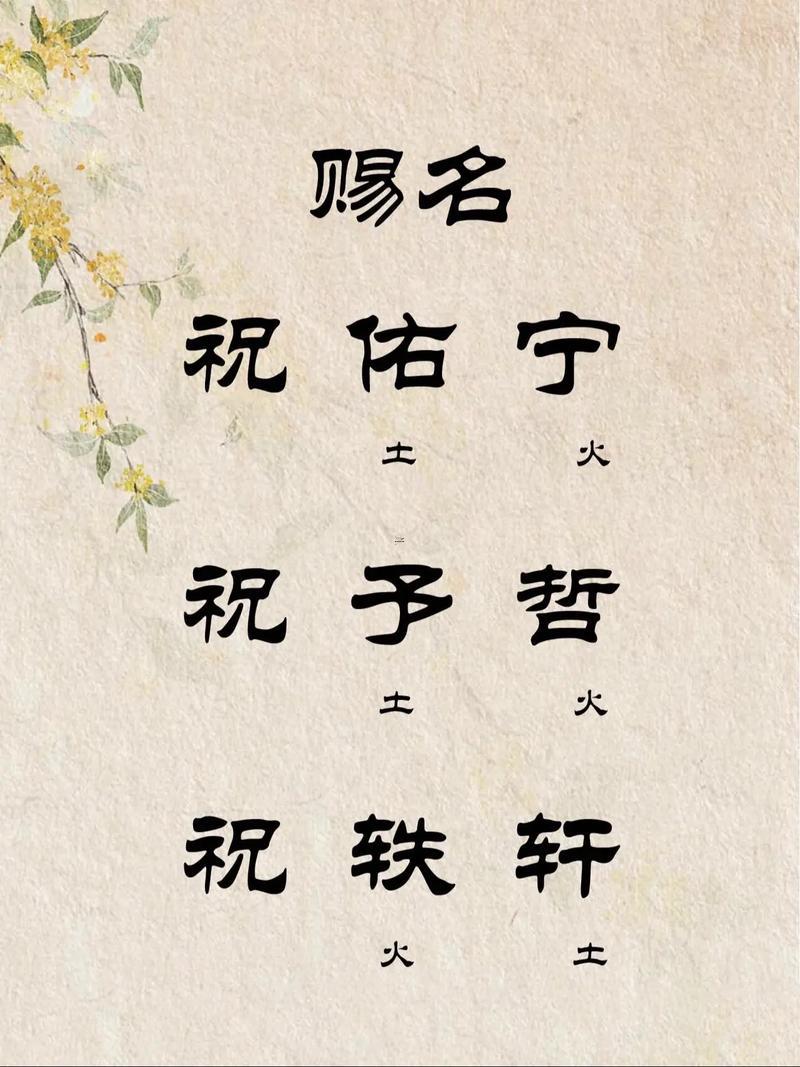 赐名
祝 佑 宁
土 火
祝 予 哲
土 火
祝 轶 轩
火 土